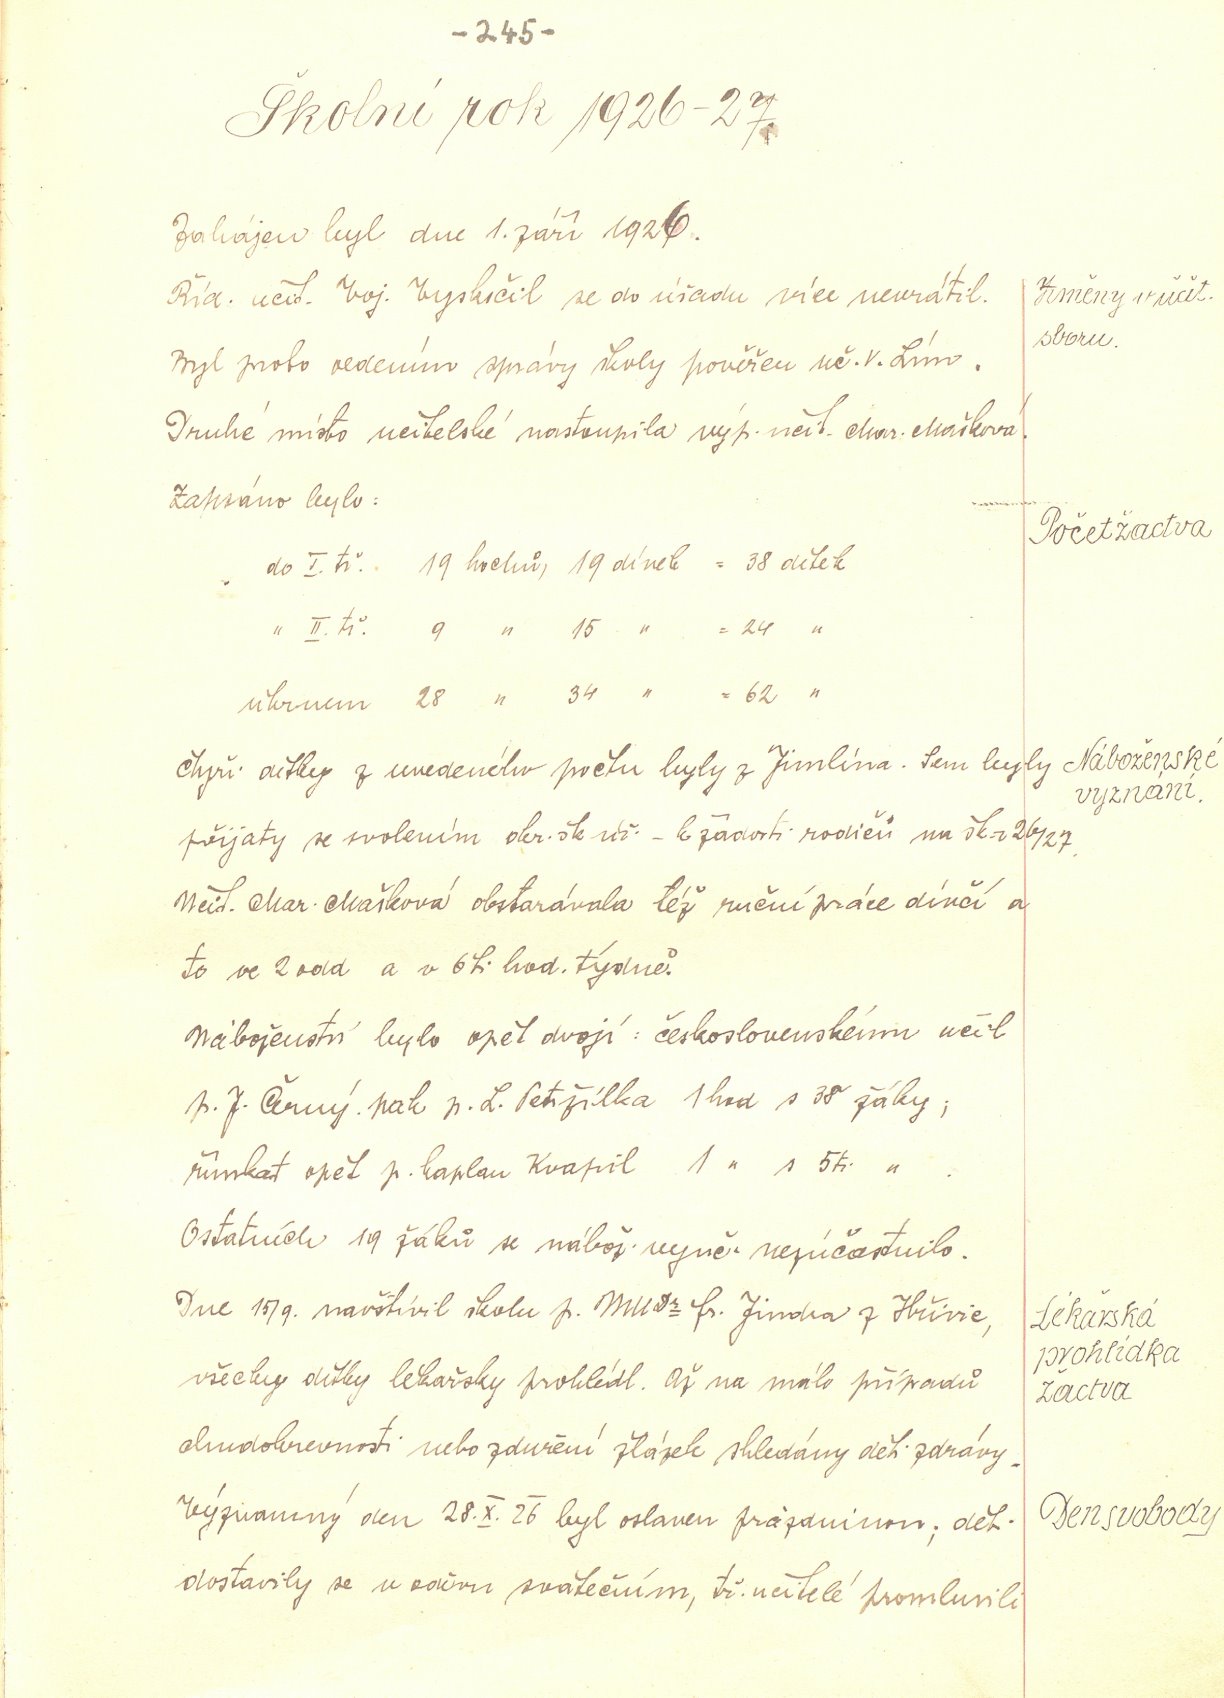 -245-
Školní rok 1926-27.
Zahájen byl dne 1. září 1926.
Říd. učit. Voj. Vyskočil se do úřadu více nevrátil.
Změny v učit.
sboru.
Byl proto vedením správy školy pověřen uč. V. Lím.
Druhé místo učitelské nastoupila výp. učit. Mar. Mašková.
Zapsáno bylo:
Početžactva
do I. tř. 19 hochů, 19 dívek = 38 dítek
" II. tř. 9 " 15 " = 24 "
úhrnem 28 " 34 " = 62 "
Čtyři dítky z uvedeného počtu byly z Jimlína. Sem byly
Náboženské
vyznání.
přijaty se svolením okr. šk. úř. - k žádosti rodičů na šk. r 26/27.
Učit. Mar. Mašková obstarávala též ruční práce dívčí a
to ve 2 odd a v 6ti hod. týdně.
Náboženství bylo opět dvojí: československému učil
p. J. Černý. pak p. L. Petržílka 1 hod s 38 žáky;
římkat opět p. kaplan Kvapil 1 " s 5ti "
Ostatních 19 žáků se nábož. vyuč. nezúčastnilo.
Dne 15/9. navštívil školu p. MUDr fr. Jindra z Hřivic,
Lékařská
prohlídka
žactva
všecky dítky lékařsky prohlédl. Až na málo případů
chudokrevnosti nebo zduření žlázek shledány děti zdrávy.
Významný den 28. X. 26 byl oslaven prázdninou; děti
Den svobody
dostavily se v oděvu svátečním, tř. učitelé promluvili